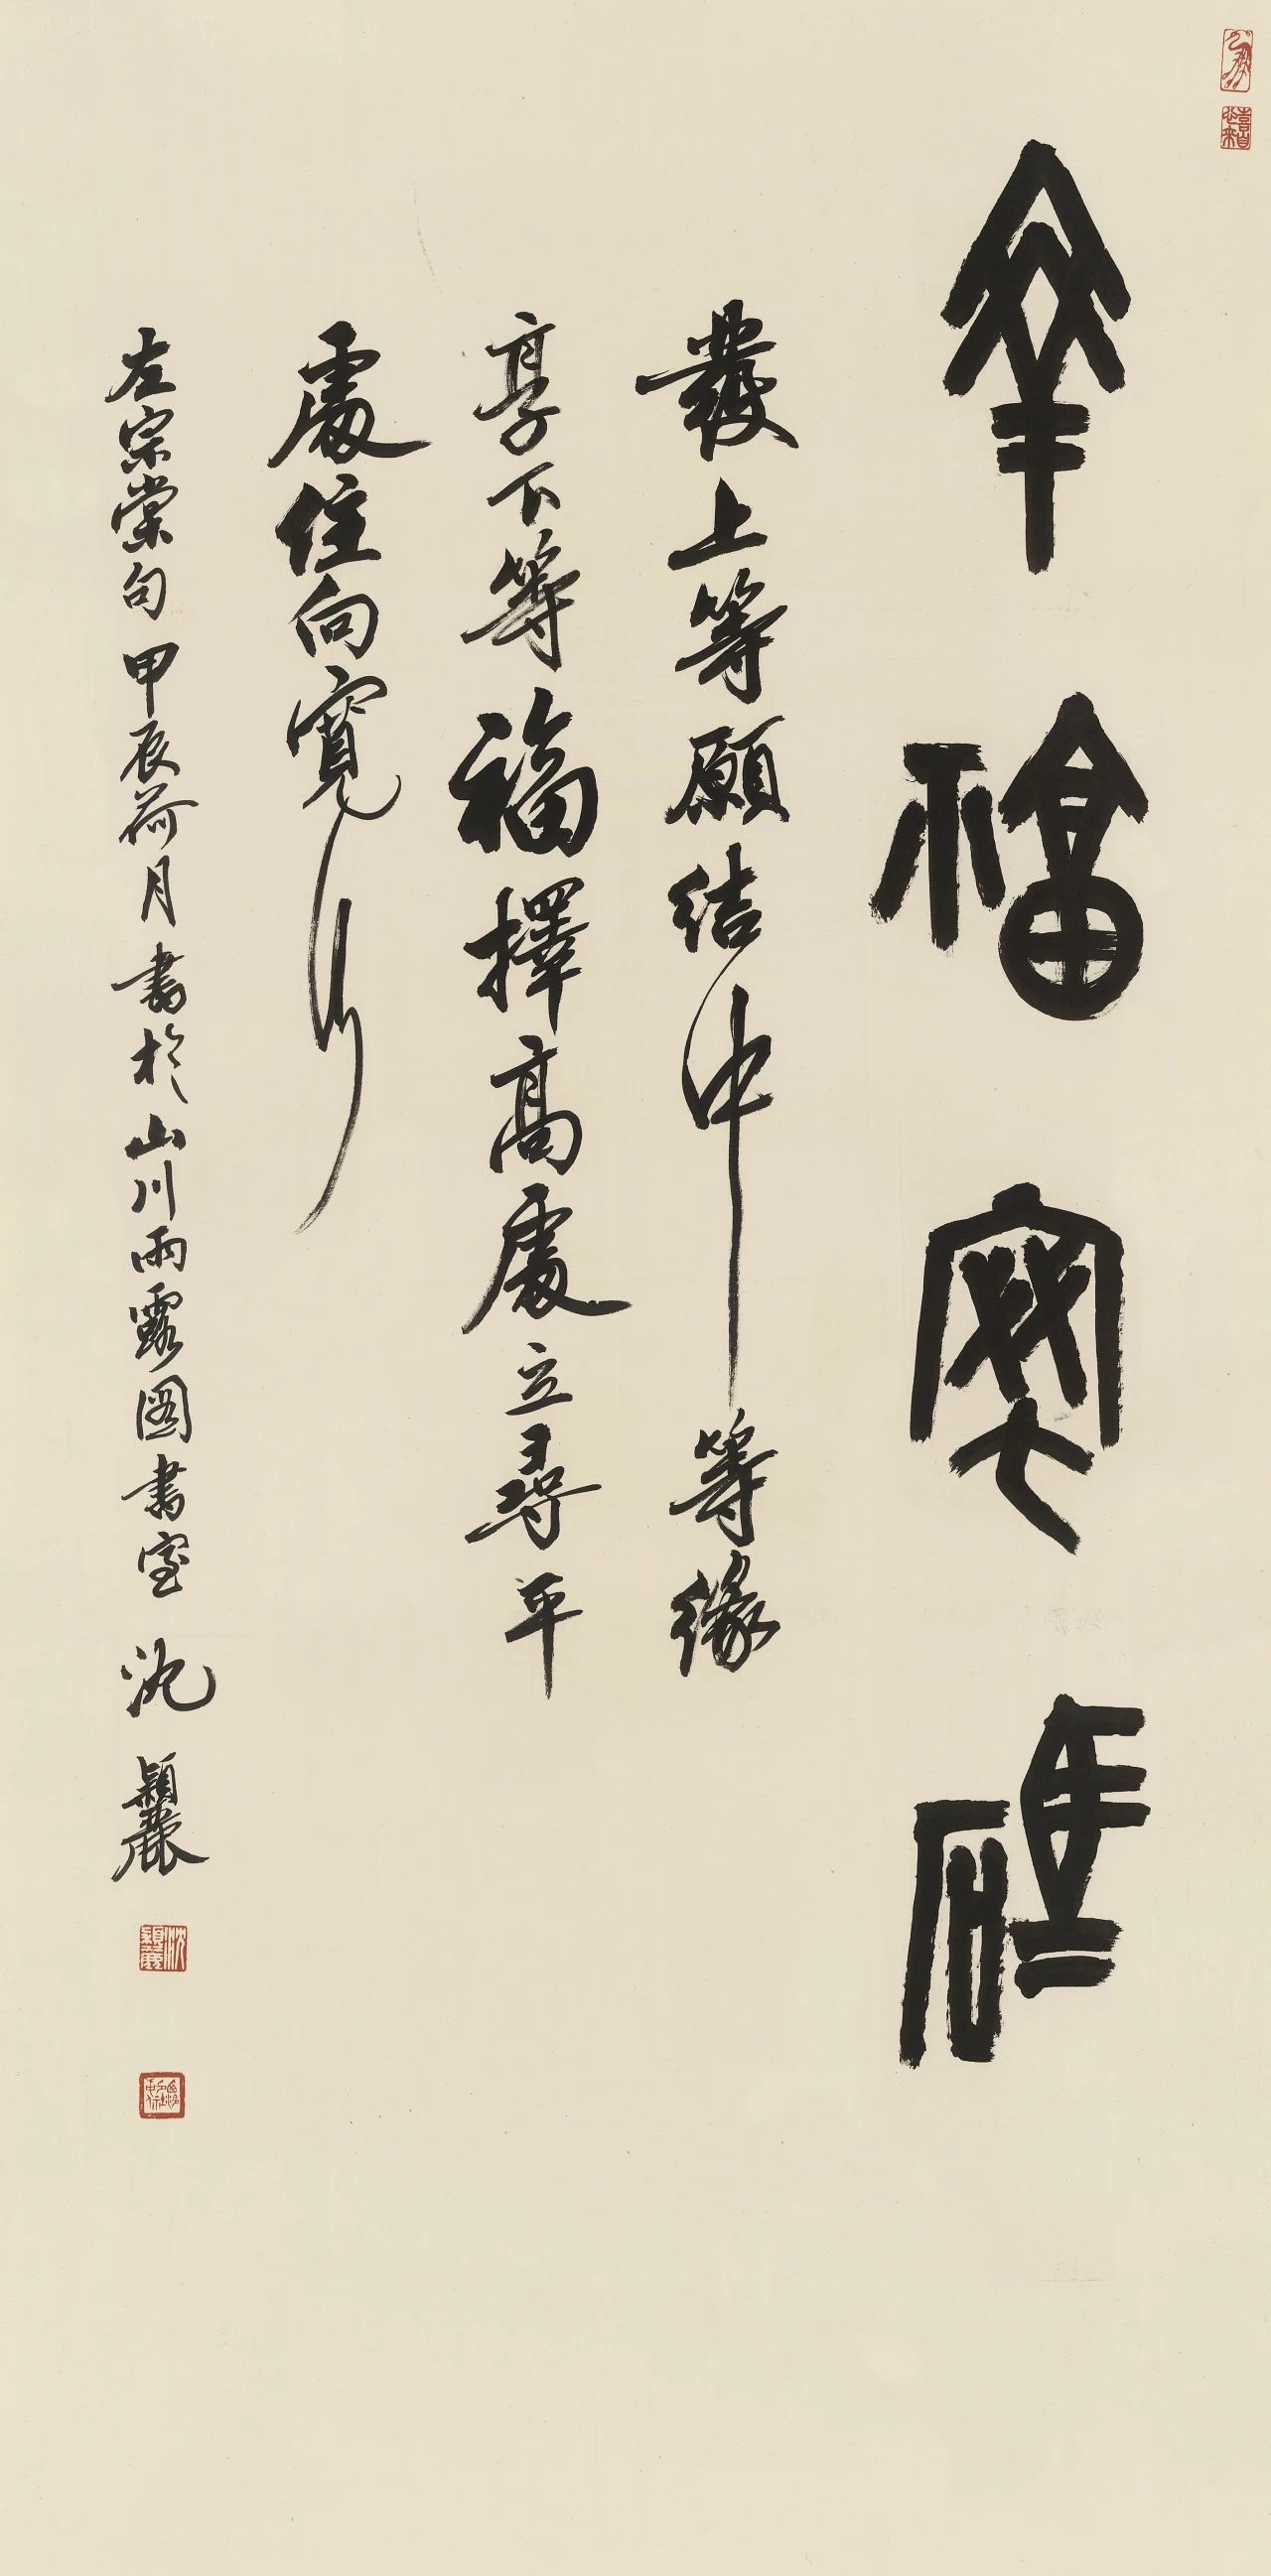 幸福密碼
發上等願結中等緣
享下等福擇高處立尋平
處住向寬行
左宗棠句 甲辰荷月書於山川雨露圖書室 沈穎麗
沈穎麗